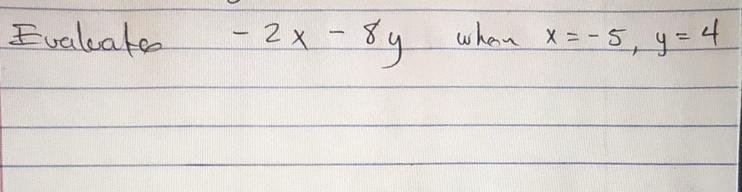 Evaluate -2x - 8y when x = -5, y = 4